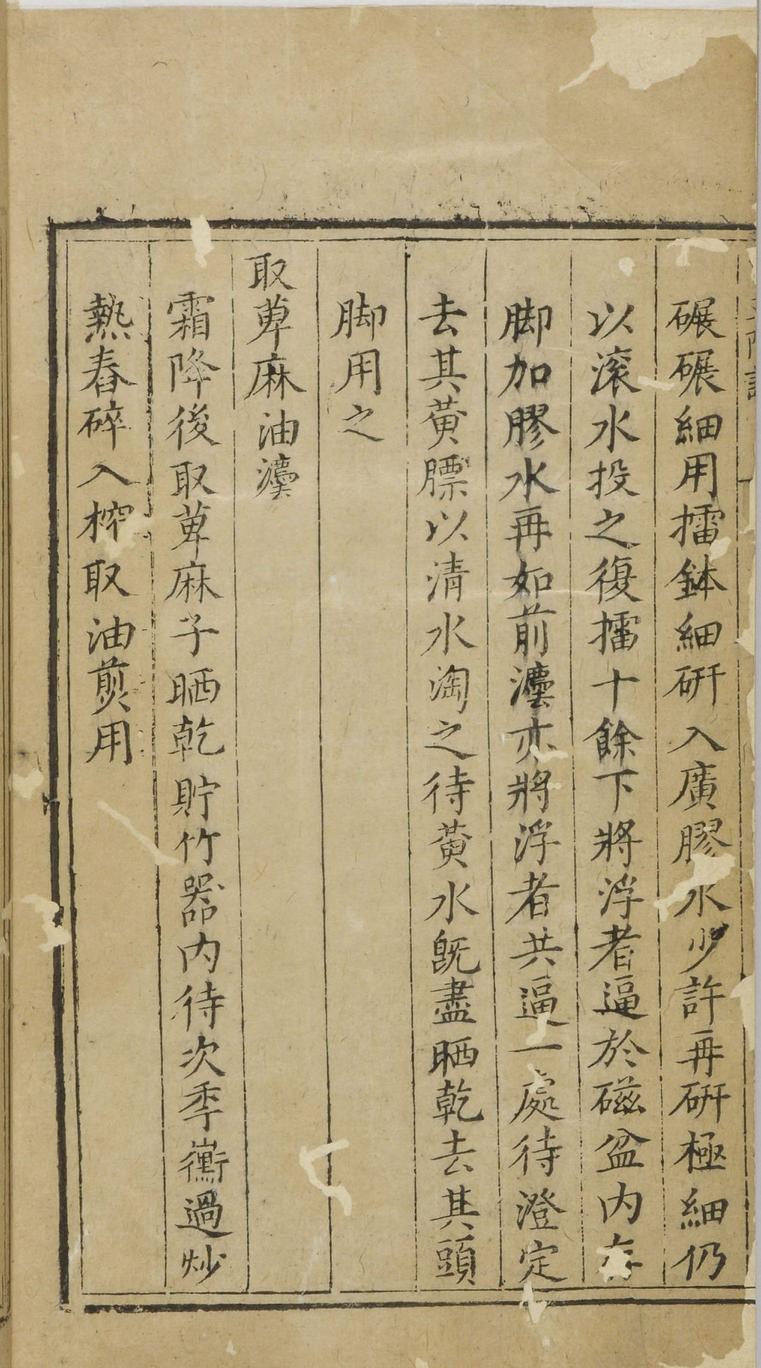 碾碾細用擂鉢細研入廣膠水少許再研極細仍
以滚水投之復擂十餘下將浮者逼於磁盆内存
脚加膠水再如前灋亦將浮者共逼一處待澄定
去其黄膘以清水淘之待黄水旣盡晒乾去其頭
脚用之
取萆麻油灋
霜降後取萆麻子晒乾貯竹器内待次季黴過炒
熱舂碎入榨取油煎用